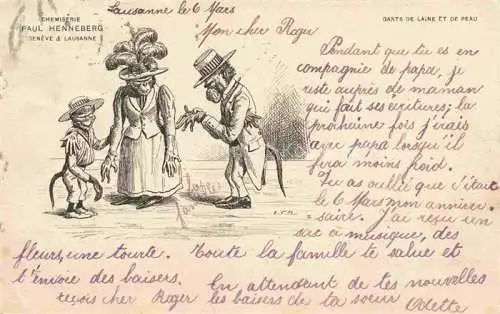 CHEMISERIE
PAUL HENNEBERG
GENÈVE & LAUSANNE
GANTS DE LAINE ET DE PEAU
Lausanne le 6 Mars
Mon cher Roger
Pendant que tu es en
compagnie de papa, je
reste auprès de maman
qui fait ses écritures; la
prochaine fois j'irais
avec papa lorsqu'il
fera moins froid.
Tu as oublié que c'était
le 6 Mars mon anniver-
saire. J'ai reçu un
sac à musique, des
fleurs, une tourte. Toute la famille te salue et
t'envoie des baisers. En attendant de tes nouvelles
reçois cher Roger les baisers de ta soeur
Odette